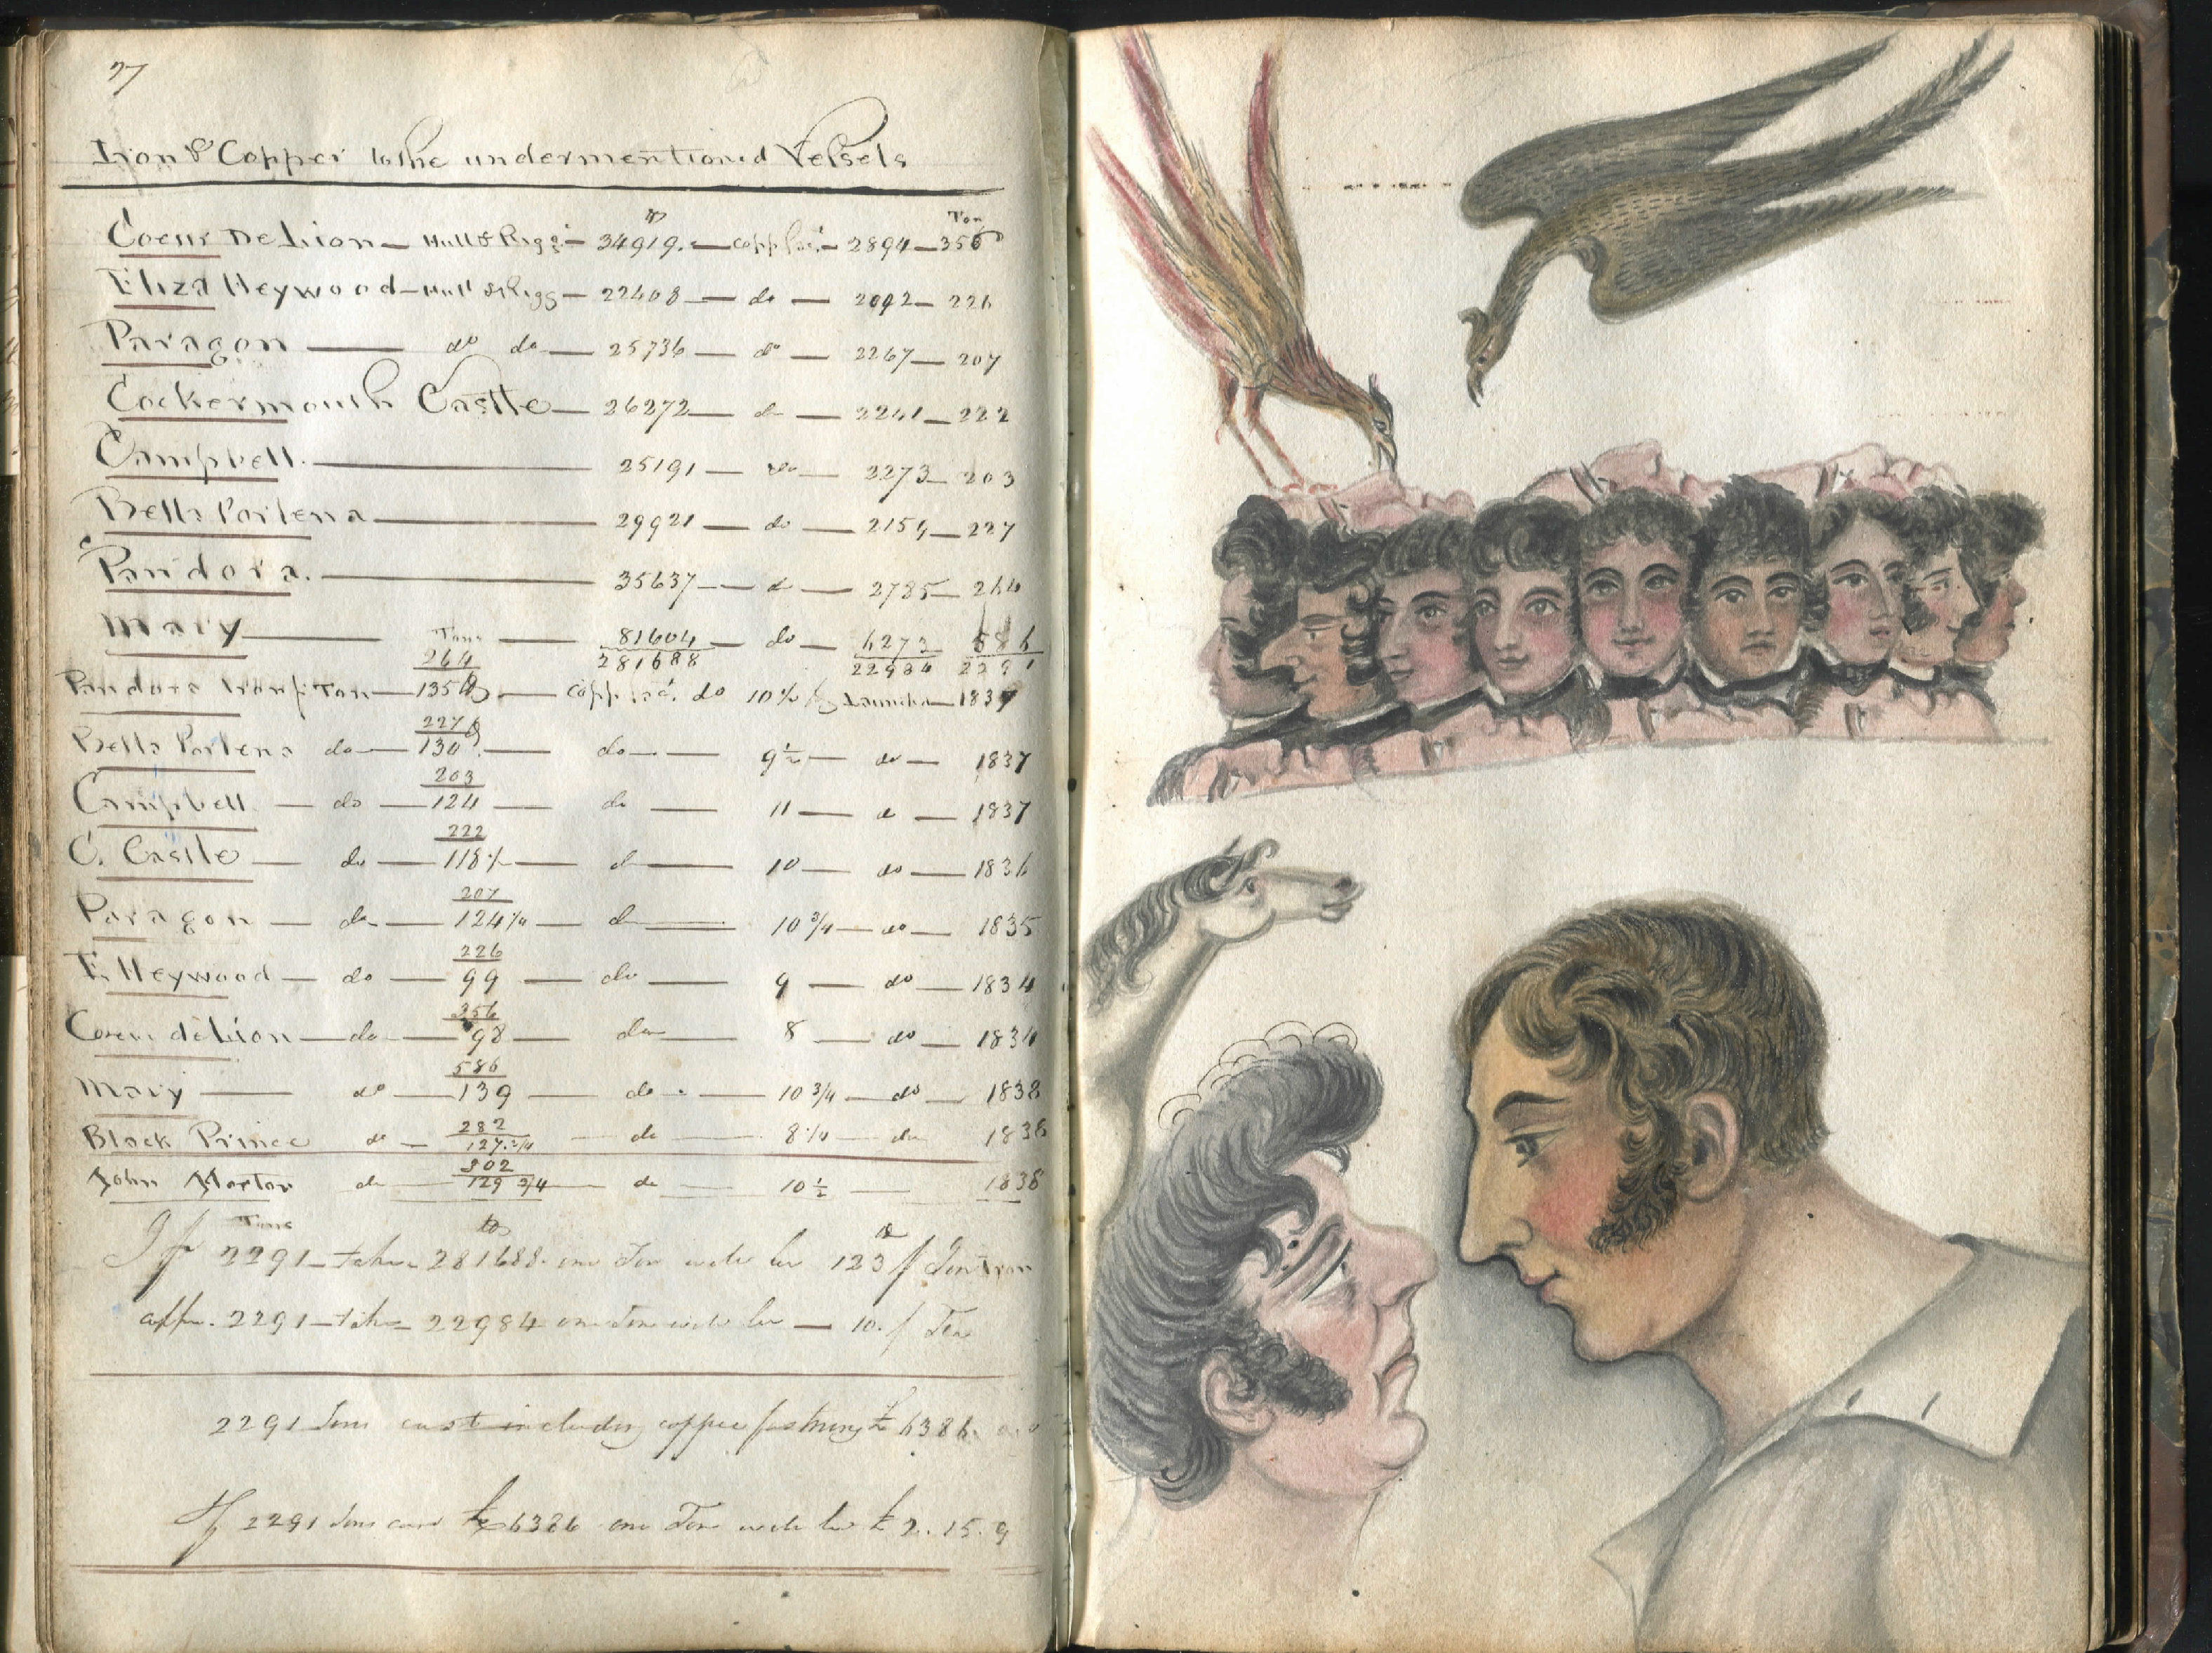 77
Iron & Copper to the undermentioned Vessels
lb Ton
Coeur De Lion — Hull & Rigg — 34919. — copp — 2894 — 356
Eliza Heywood — Hull & Rigg — 22408 — do — 2092 — 226
Paragon — do do — 25736 — do — 2267 — 207
Cockermouth Castle — 26272 — do — 2241 — 222
Campbell. — 25191 — do — 2273 — 203
Bella Portena — 29921 — do — 2154 — 227
Pandora. — 35637 — do — 2785 — 264
Mary — 81604 — do — 6272 586
Tons 281688 22984 2291
264
Pandora Iron p Ton — 135 — Copp do 10 1/2 Launched — 1837
227
Bella Portena do — 130 — do — 9 1/2 — do — 1837
203
Campbell — do — 124 — do — 11 — do — 1837
222
C. Castle — do — 118 — do — 10 — do — 1836
207
Paragon — do — 124 1/4 — do — 10 3/4 — do — 1835
226
E Heywood — do — 99 — do — 9 — do — 1834
356
Coeur de Lion — do — 98 — do — 8 — do — 1834
586
Mary — do — 139 — do — 10 3/4 — do — 1838
282
Black Prince do — 127 3/4 — do — 8 1/4 — do 1838
302
John do — 129 3/4 — do — 10 1/2 — 1838
Tons lb lb
If 2291 — take 281688 one Ton will be 123 p Ton Iron
copp. 2291 — take 22984 one Ton will be — 10. p Ton
2291 Tons cost including copper fastning £ 6386
If 2291 Tons cost £ 6386 one Ton will be £ 2.. 15. 9